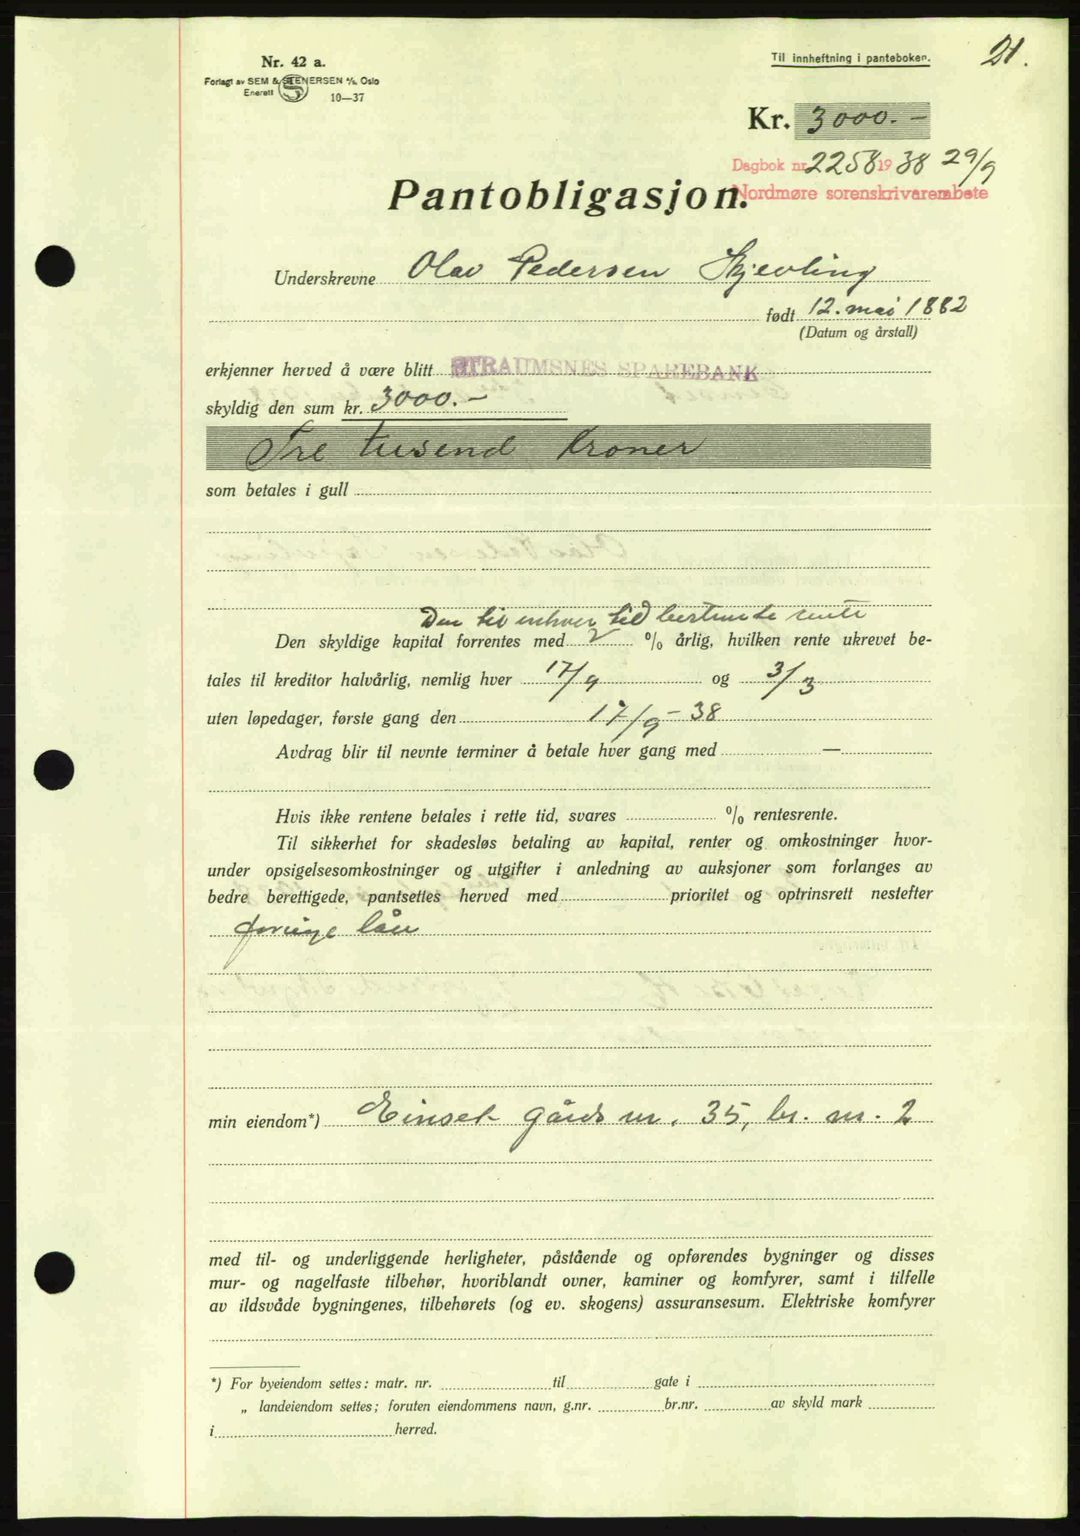 Nr. 42 a.
Forlagt av SEM & STENERSEN A/S, Oslo
Enerett
10—37
Til innheftning i panteboken.
21.
Kr. 3000.-
Dagbok nr. 2258 1938 29/9
Nordmøre sorenskriverembete
Pantobligasjon.
Underskrevne Olav Pedersen Skjevling
født 12. mai 1882
(Datum og årstall)
erkjenner herved å være blitt STRAUMSNES SPAREBANK
skyldig den sum kr. 3000.-
Tre tusend kroner
som betales i gull
Den til enhver tid bestemte rente
Den skyldige kapital forrentes med % årlig, hvilken rente ukrevet be-
tales til kreditor halvårlig, nemlig hver 17/9 og 3/3
uten løpedager, første gang den 17/9-38
Avdrag blir til nevnte terminer å betale hver gang med —
Hvis ikke rentene betales i rette tid, svares % rentesrente.
Til sikkerhet for skadesløs betaling av kapital, renter og omkostninger hvor-
under opsigelsesomkostninger og utgifter i anledning av auksjoner som forlanges av
bedre berettigede, pantsettes herved med prioritet og optrinsrett nestefter
forrige lån
min eiendom*) Einset gårds nr. 35, br. nr. 2
med til- og underliggende herligheter, påstående og opførendes bygninger og disses
mur- og nagelfaste tilbehør, hvoriblandt ovner, kaminer og komfyrer, samt i tilfelle
av ildsvåde bygningenes, tilbehørets (og ev. skogens) assuransesum. Elektriske komfyrer
*) For byeiendom settes: matr. nr. til gate i
„ landeiendom settes; foruten eiendommens navn, g.nr. br.nr. av skyld mark
i herred.